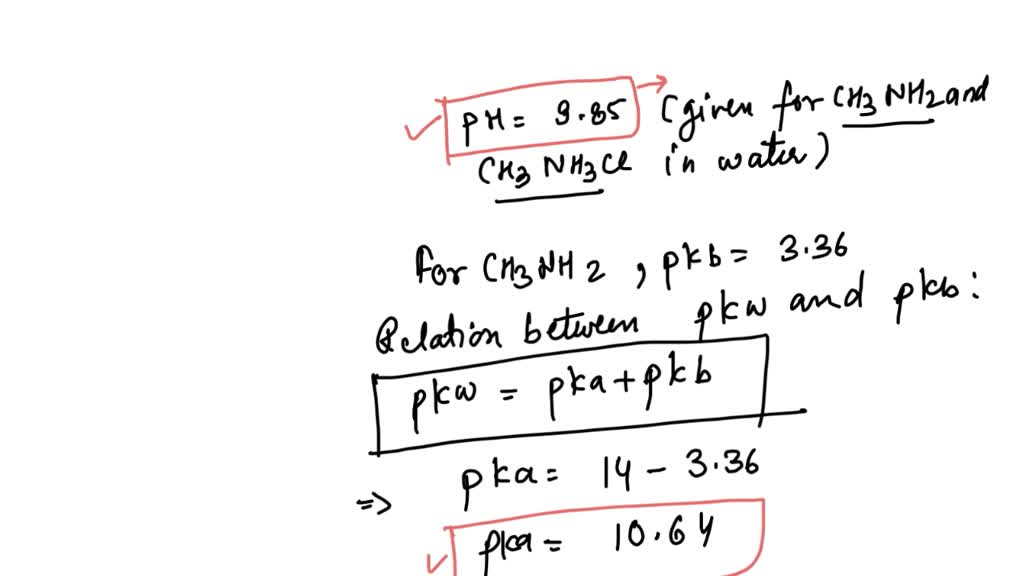 pH = 9.85 (given for CH3 NH2 and
CH3 NH3Cl in water)
for CH3NH2, pkb = 3.36
Relation between pkw and pkb:
pkw = pka + pkb
=> pka = 14 - 3.36
pka = 10.64